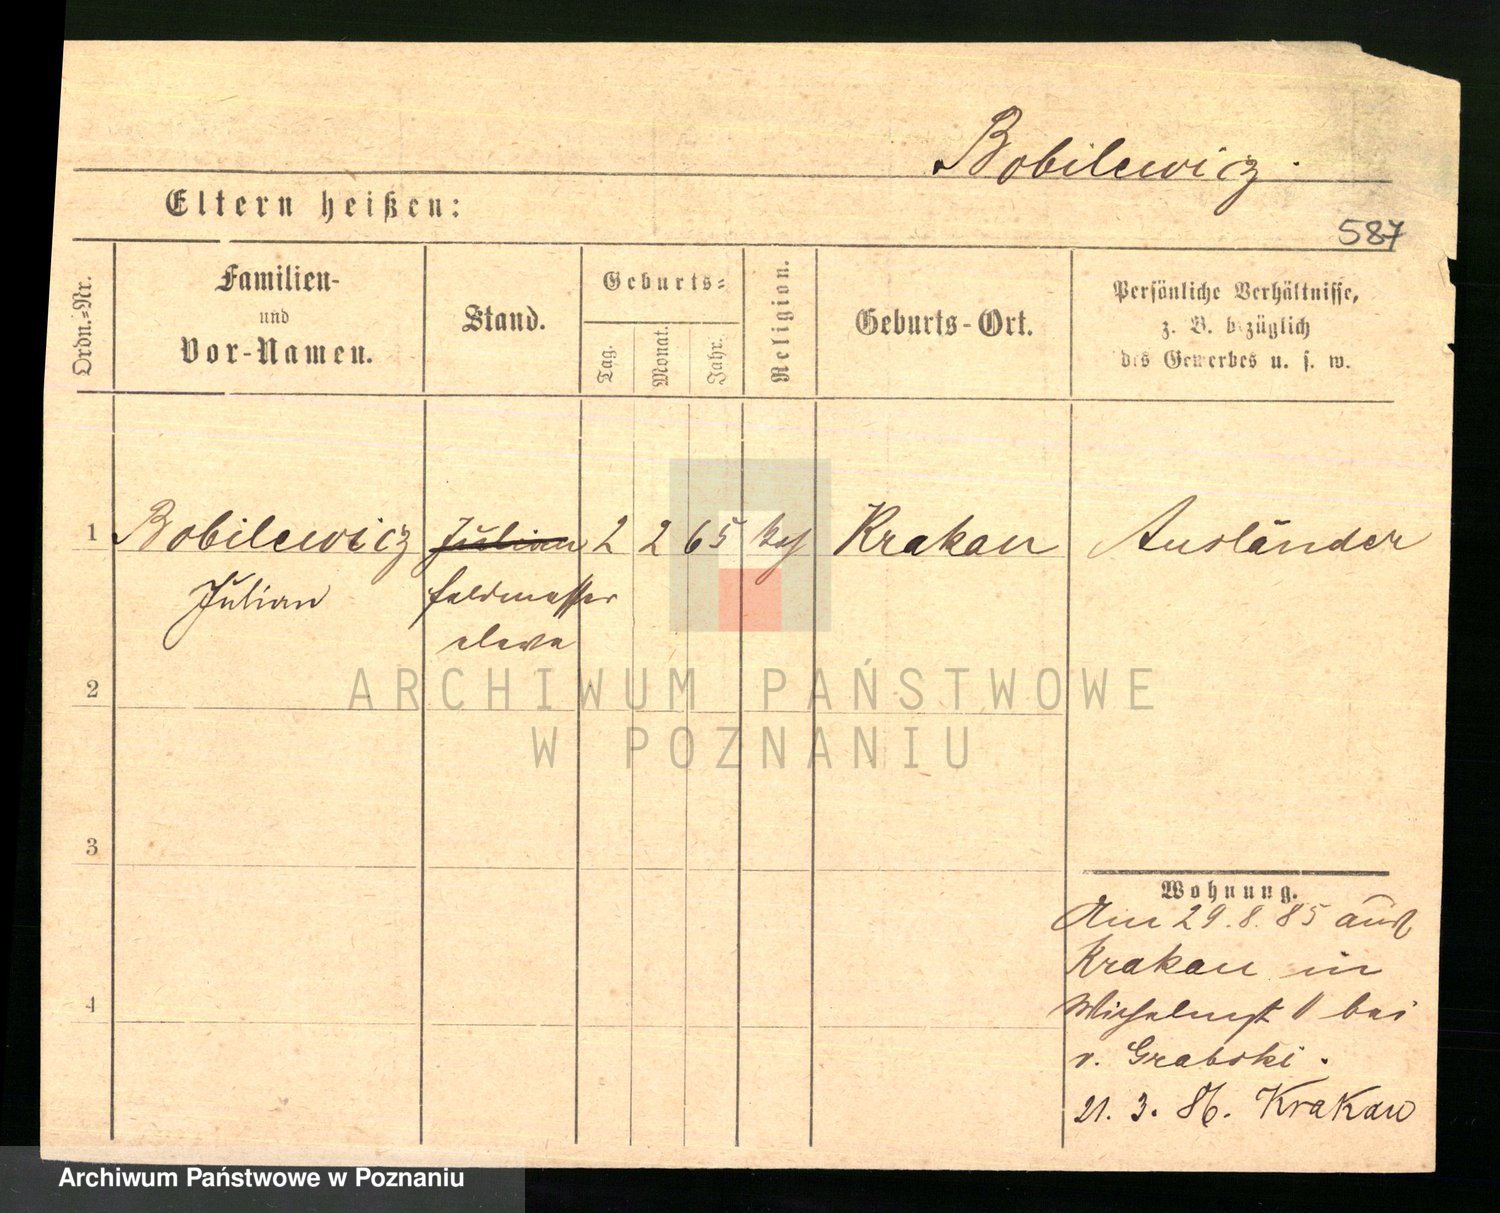 Bobilewicz.
Eltern heißen:
587
Ordn.-Nr.
Familien-
und
Vor-Namen.
Stand.
Geburts-
Tag.
Monat.
Jahr.
Religion.
Geburts-Ort.
Persönliche Verhältnisse,
z. B. bezüglich
des Gewerbes u. s. w.
1 Bobilewicz Julian 2 2 65 Krakau Ausländer
Julian Feldmesser
eleve
ARCHIWUM PAŃSTWOWE
W POZNANIU
2
3
4
Wohnung.
Am 29.8.85 aus
Krakau in
bei
v. Grabski.
21. 3. 86. Krakau
Archiwum Państwowe w Poznaniu